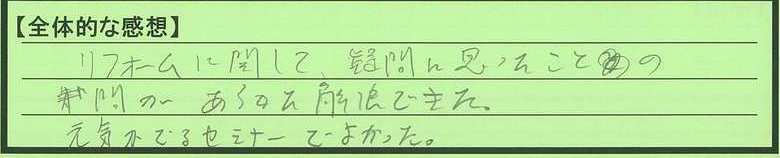 【全体的な感想】
リフォームに関して、疑問に思ったことの
問が 解決できた。
元気がでるセミナーでよかった。